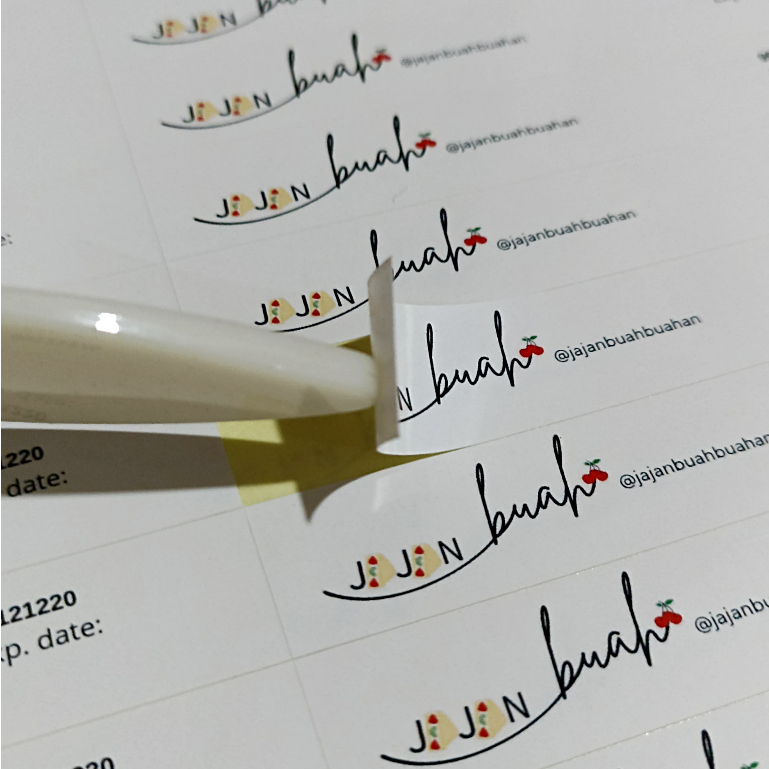 buah
JAJAN buah @jajanbuahbuahan
JAJAN buah @jajanbuahbuahan
JAJAN buah @jajanbuahbuahan
N buah @jajanbuahbuahan
1220
date:
JAJAN buah @jajanbuahbuahan
121220
p. date:
JAJAN buah @jajanbu
20